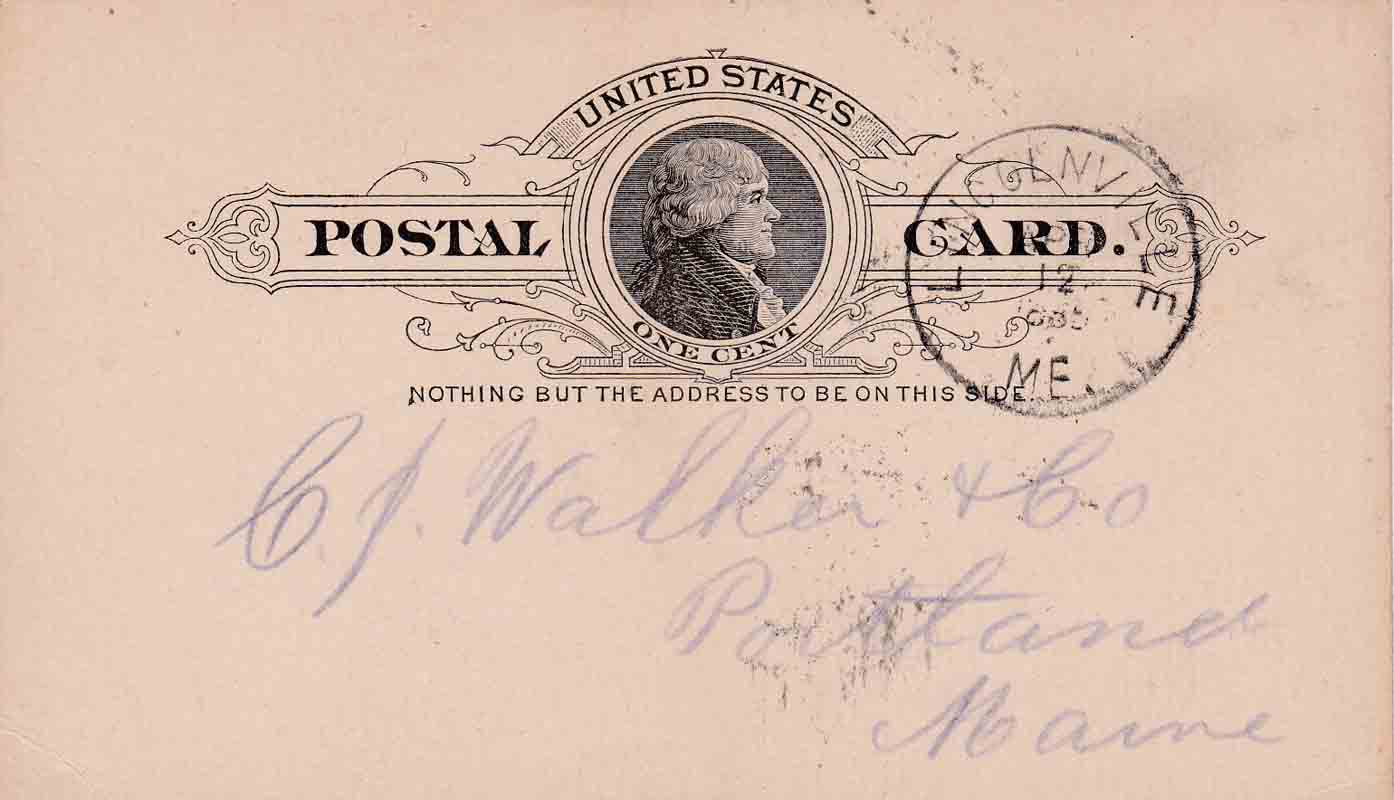 UNITED STATES
POSTAL CARD.
ONE CENT
NOTHING BUT THE ADDRESS TO BE ON THIS SIDE.
12
ME.
C. J. Walker & Co
Portland
Maine